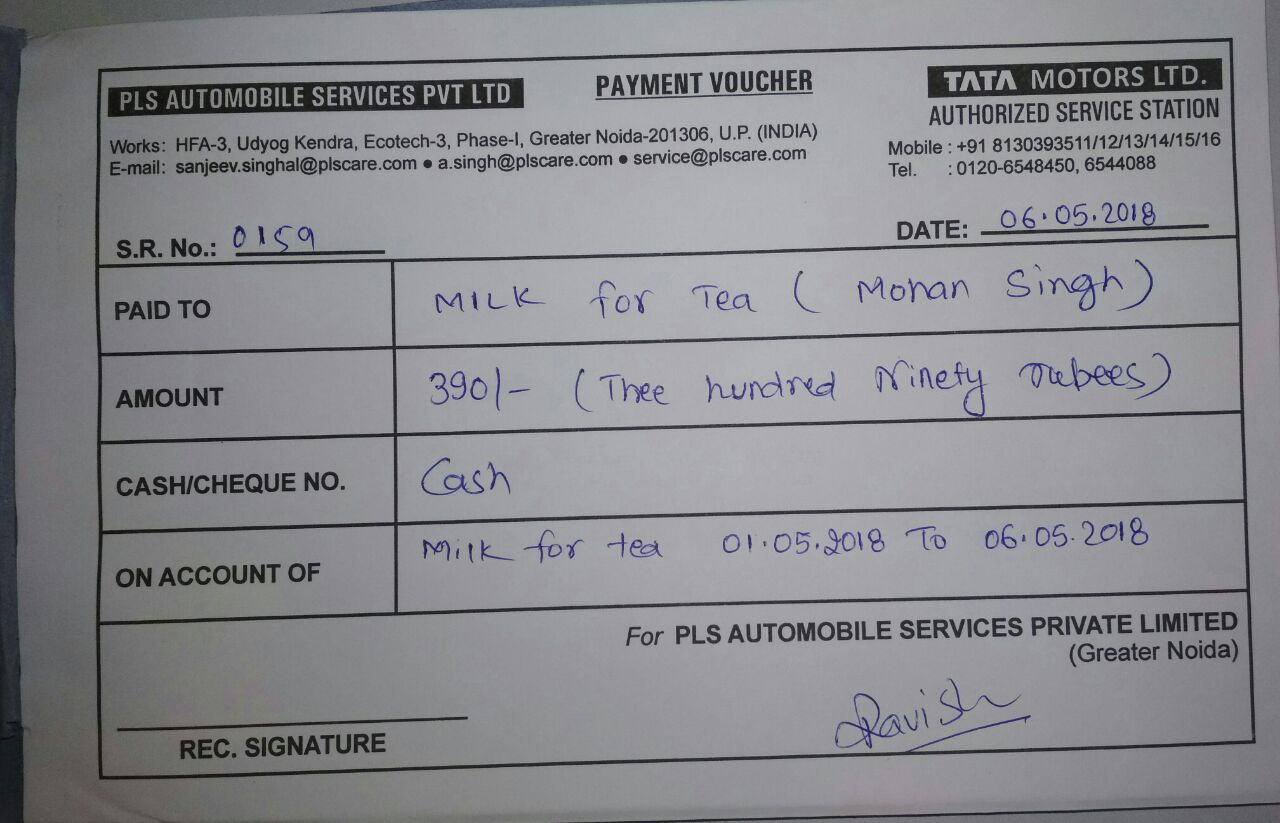 PLS AUTOMOBILE SERVICES PVT LTD
PAYMENT VOUCHER
TATA MOTORS LTD.
AUTHORIZED SERVICE STATION
Works: HFA-3, Udyog Kendra, Ecotech-3, Phase-I, Greater Noida-201306, U.P. (INDIA)
E-mail: sanjeev.singhal@plscare.com ● a.singh@plscare.com ● service@plscare.com
Mobile : +91 8130393511/12/13/14/15/16
Tel. : 0120-6548450, 6544088
S.R. No.: 0159
DATE: 06.05.2018
PAID TO MILK for Tea ( Mohan Singh )
AMOUNT 390/- ( Thee hundred Ninety rubees )
CASH/CHEQUE NO. Cash
ON ACCOUNT OF Milk for tea 01.05.2018 To 06.05.2018
For PLS AUTOMOBILE SERVICES PRIVATE LIMITED
(Greater Noida)
Ravish
REC. SIGNATURE